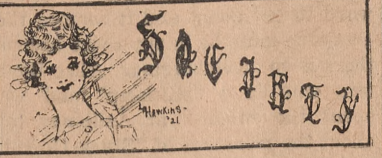 SOCIETY
HAWKINS-
'21